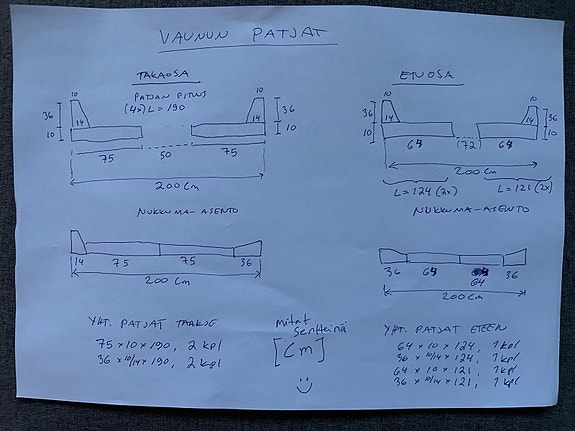 VAUNUN PATJAT
TAKAOSA
PATJAN PITUUS
(4x) L = 190
10
36
10
14
10
36
10
14
75
50
75
200 cm
NUKKUMA-ASENTO
14
75
75
36
200 cm
YHT. PATJAT TAAKSE
75 x 10 x 190, 2 kpl
36 x 10/14 x 190, 2 kpl
mitat
sentteinä
[cm]
ETUOSA
10
36
10
14
10
36
10
14
64
(72)
64
200 cm
L = 124 (2x)
L = 121 (2x)
NUKKUMA-ASENTO
36
64
64
36
200 cm
YHT. PATJAT ETEEN
64 x 10 x 124, 1 kpl
36 x 10/14 x 124, 1 kpl
64 x 10 x 121, 1 kpl
36 x 10/14 x 121, 1 kpl